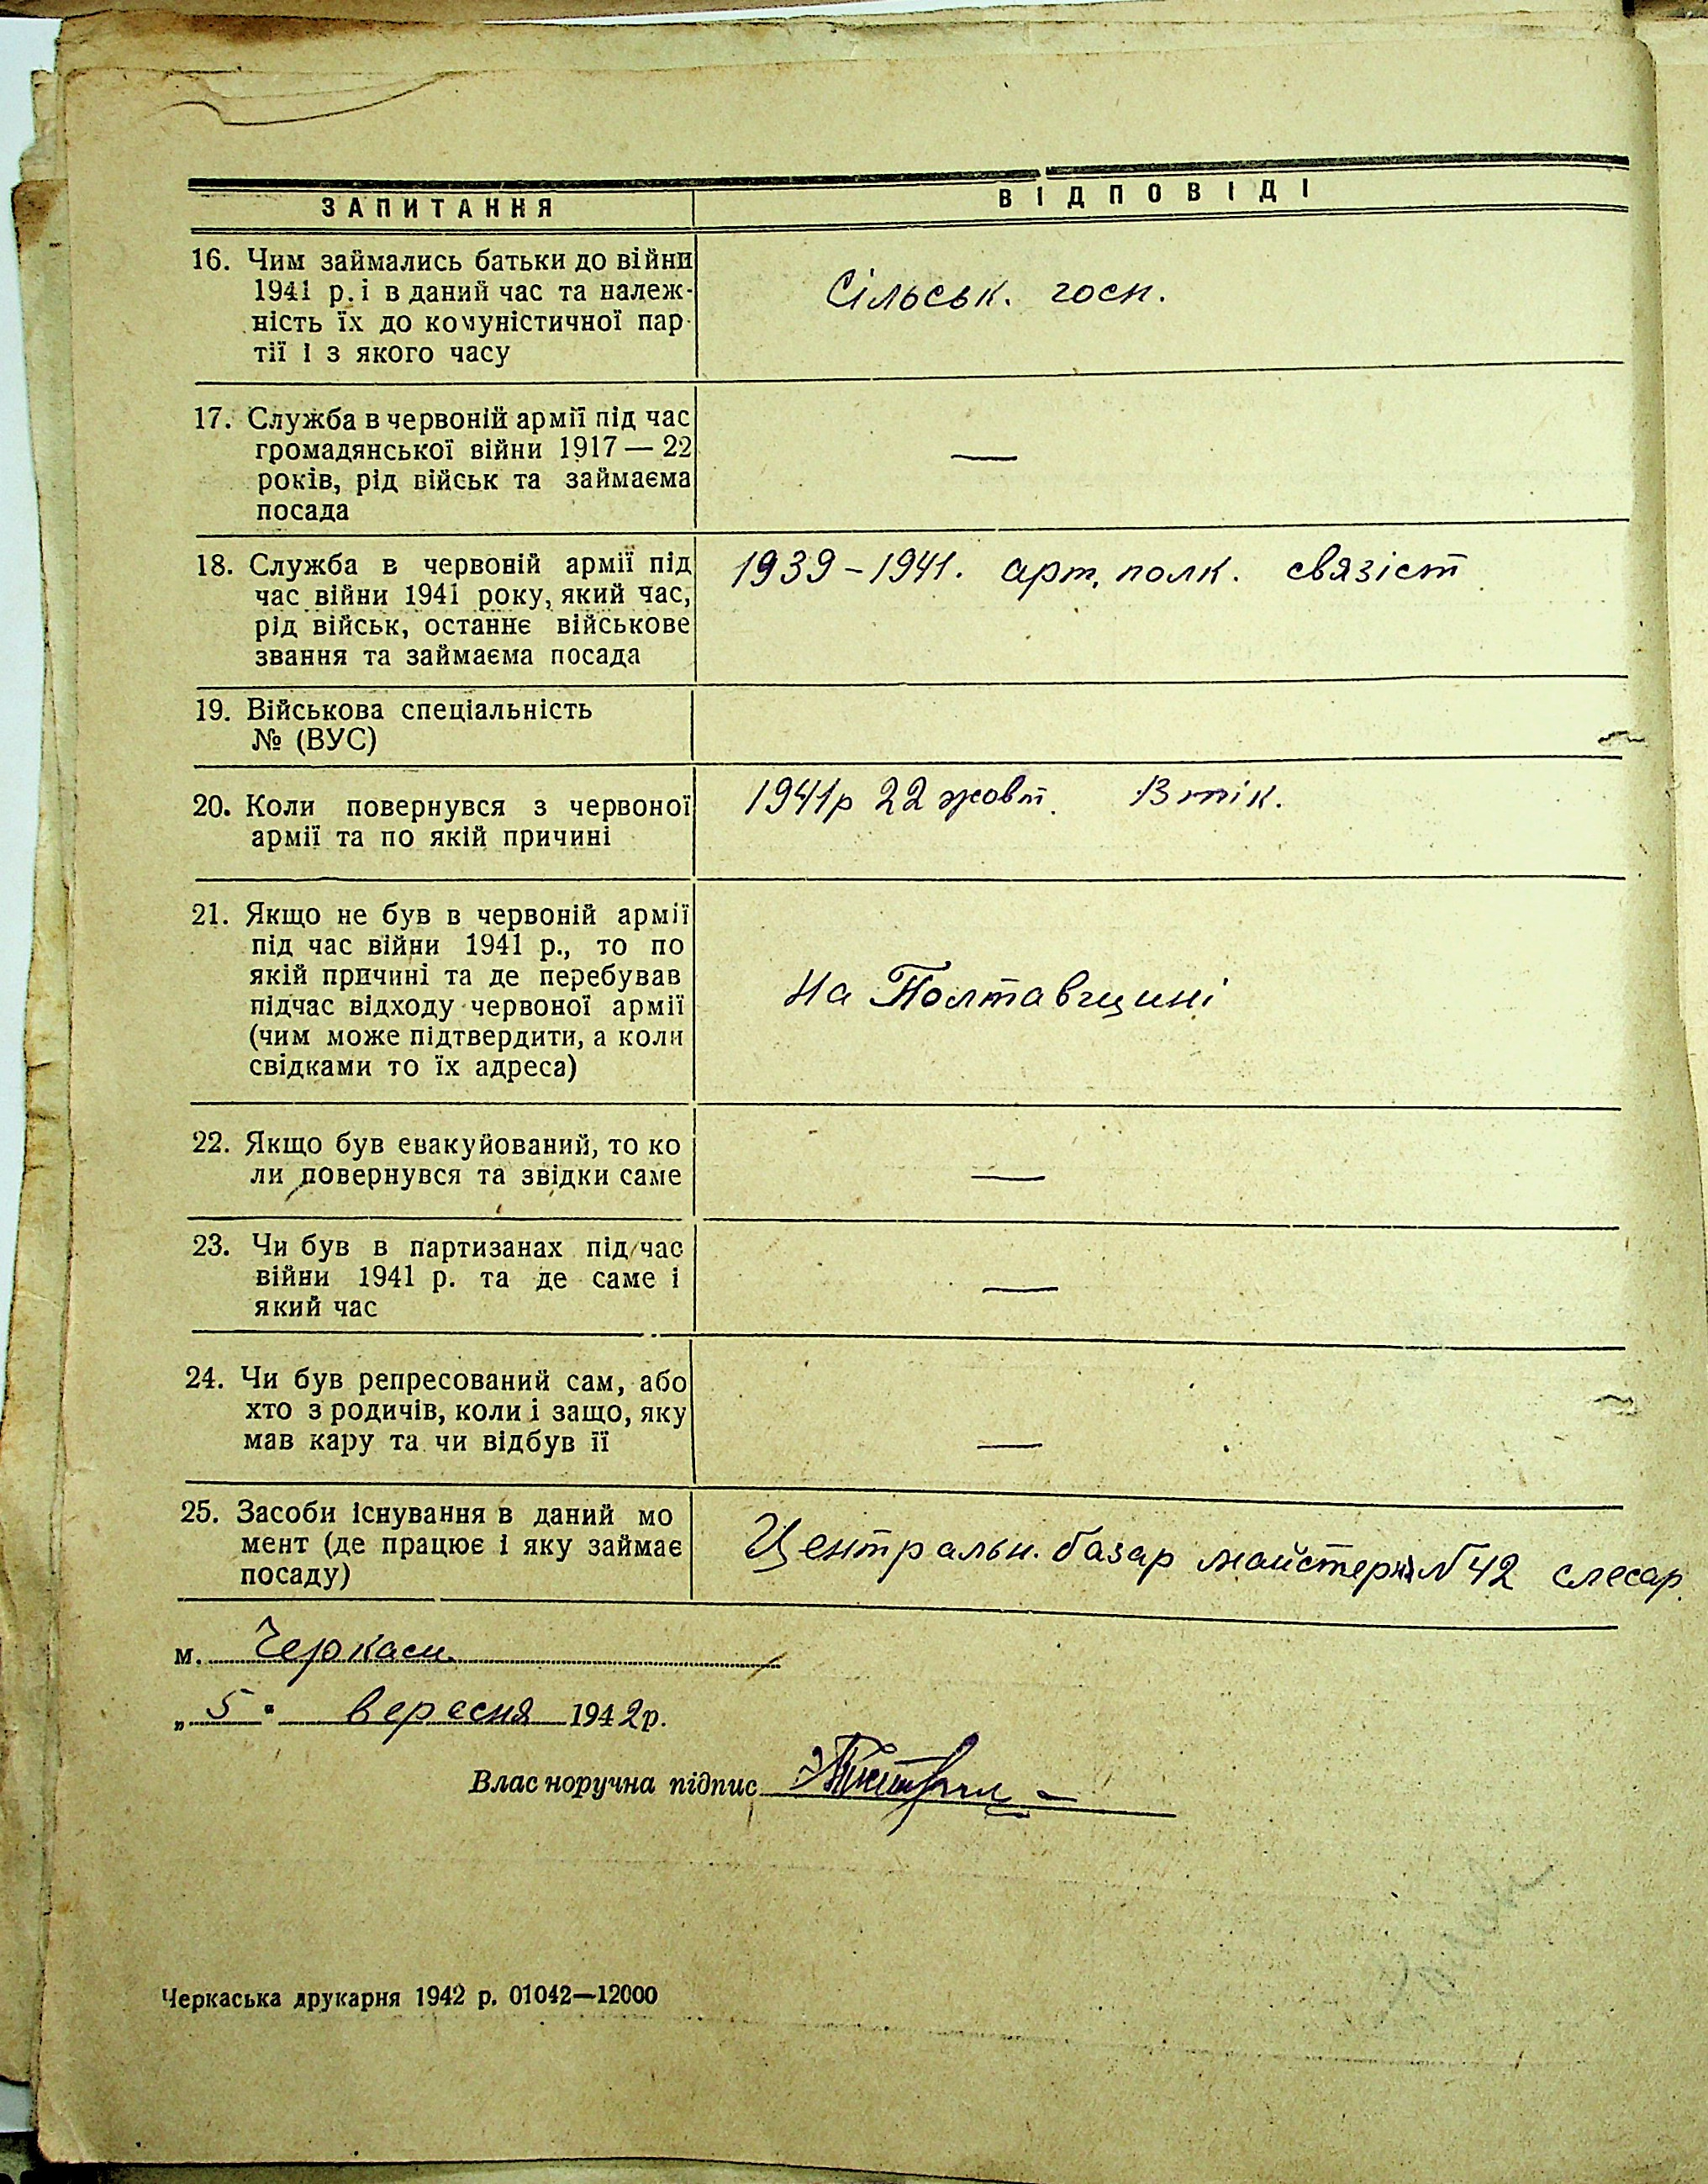 ЗАПИТАННЯ
ВІДПОВІДІ
16. Чим займались батьки до війни
1941 р. і в даний час та належ-
ність їх до комуністичної пар-
тії і з якого часу
Сільськ. госп.
17. Служба в червоній армії під час
громадянської війни 1917 — 22
років, рід військ та займаєма
посада
—
18. Служба в червоній армії під
час війни 1941 року, який час,
рід військ, останнє військове
звання та займаєма посада
1939-1941. арт. полк. связіст
19. Військова спеціальність
№ (ВУС)
20. Коли повернувся з червоної
армії та по якій причині
1941р 22 жовт. Втік.
21. Якщо не був в червоній армії
під час війни 1941 р., то по
якій причині та де перебував
підчас відходу червоної армії
(чим може підтвердити, а коли
свідками то їх адреса)
на Полтавщині
22. Якщо був евакуйований, то ко
ли повернувся та звідки саме
—
23. Чи був в партизанах під час
війни 1941 р. та де саме і
який час
—
24. Чи був репресований сам, або
хто з родичів, коли і защо, яку
мав кару та чи відбув її
—
25. Засоби існування в даний мо
мент (де працює і яку займає
посаду)
Центральн. базар майстерня N 42 слесар.
м. Черкаси
„ 5 " вересня 1942р.
Власноручна підпис
Черкаська друкарня 1942 р. 01042—12000